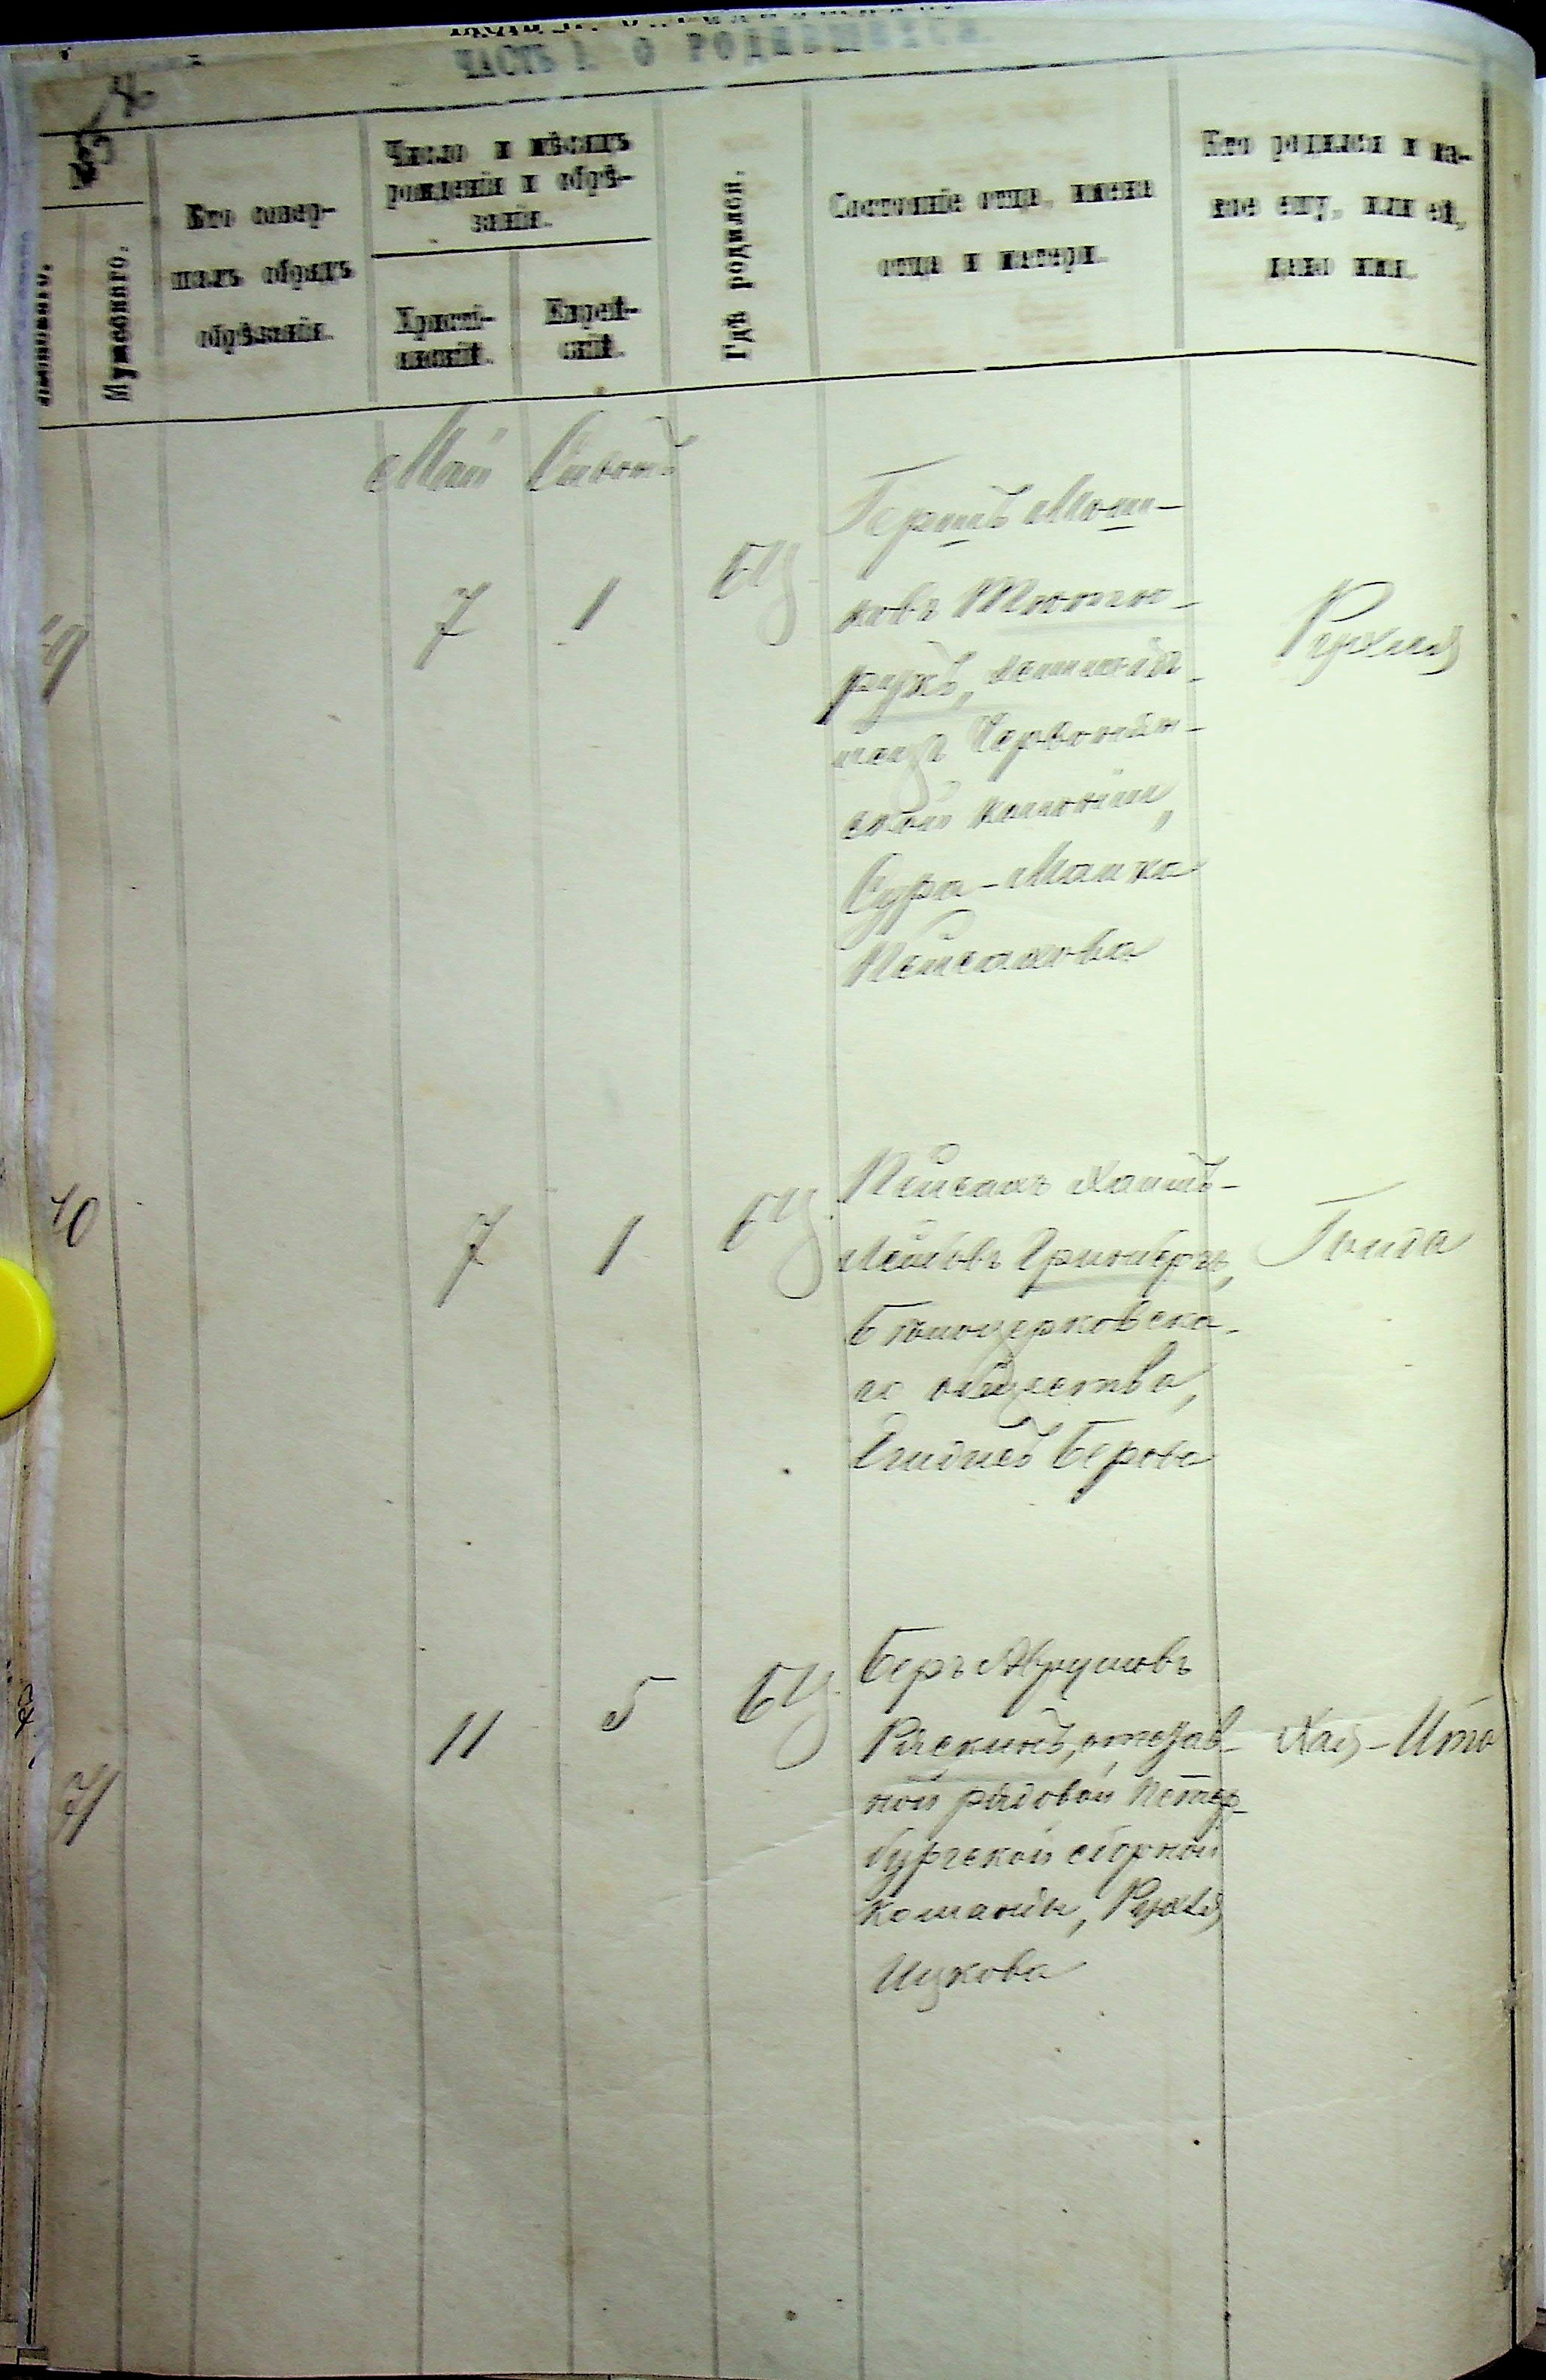 ЧАСТЬ I. О РОДИВШИХСЯ.
№
Женскаго.
Мужескаго.
Кто совер-
шалъ обрядъ
обрѣзанія.
Число и мѣсяцъ
рожденія и обрѣ-
занія.
Христі-
анскій.
Еврей-
скій.
Гдѣ родился.
Состояніе отца, имена
отца и матери.
Кто родился и ка-
кое ему, или ей,
дано имя.
Май Сивонъ
7 1 БЦ.
Гершъ Мош-
ковъ
рукъ,
нецъ
ской колоніи,
Сура-Малка
Пейсахова
Рухля
40 7 1 БЦ.
Пейсахъ Хаимъ-
Лейбовъ Гринбергъ,
Бѣлоцерковска-
го общества,
Берова
Голда
41 11 5 БЦ.
Беръ Аврумовъ
Рискинъ, отстав-
ной рядовой Петер-
бургской сборной
команды, Рухля
Ицкова
Хая-Ита